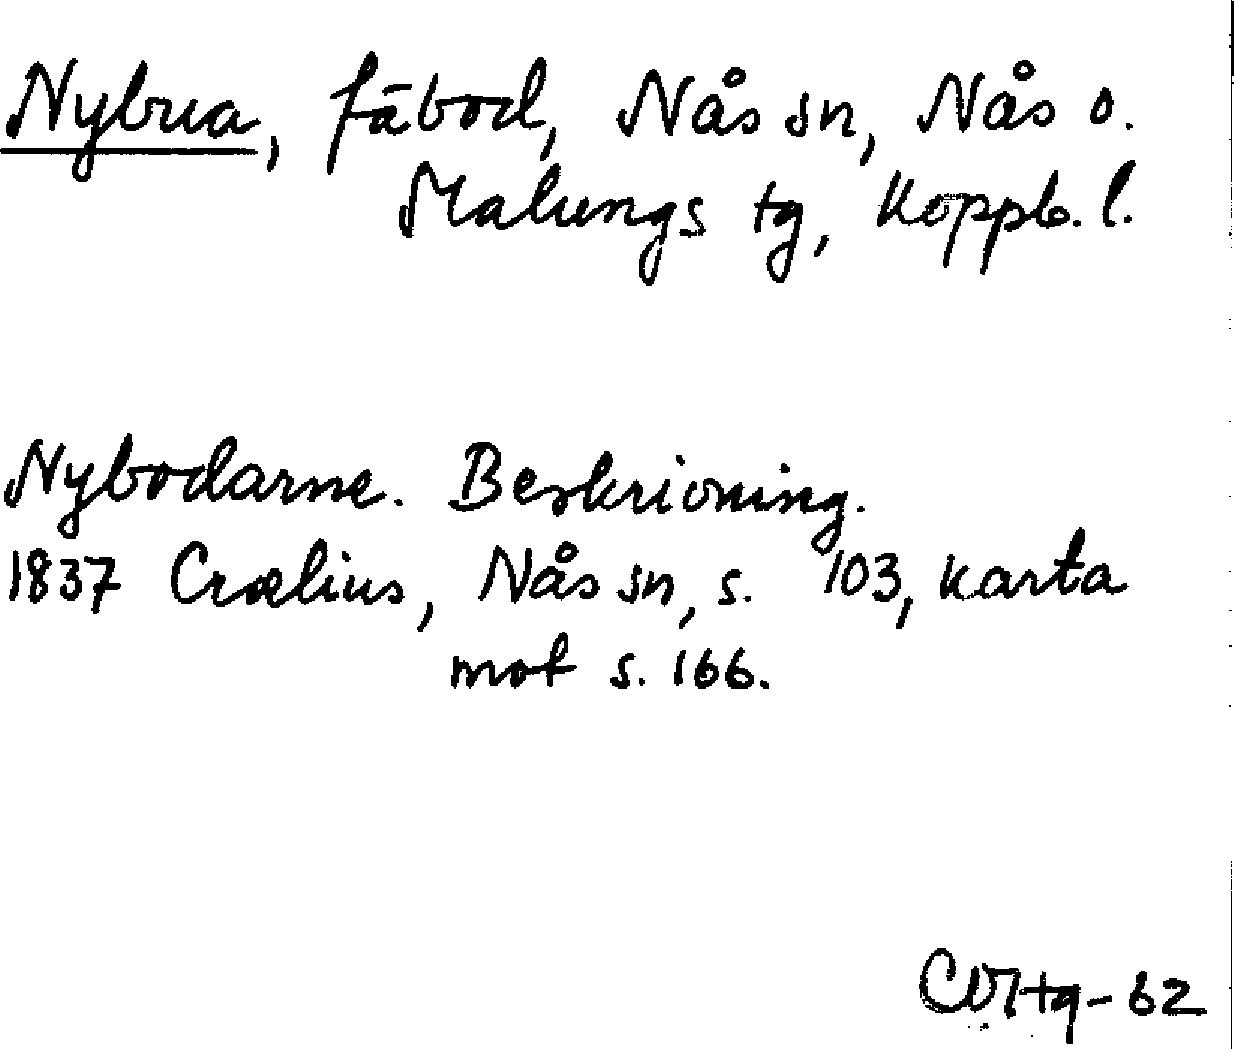 Nybua, fäbod, Nås sn, Nås o.
Malungs tg, Koppb. l.
Nybodarne. Beskrivning.
1837 Crælius, Nås sn, s. 103, karta
mot s. 166.